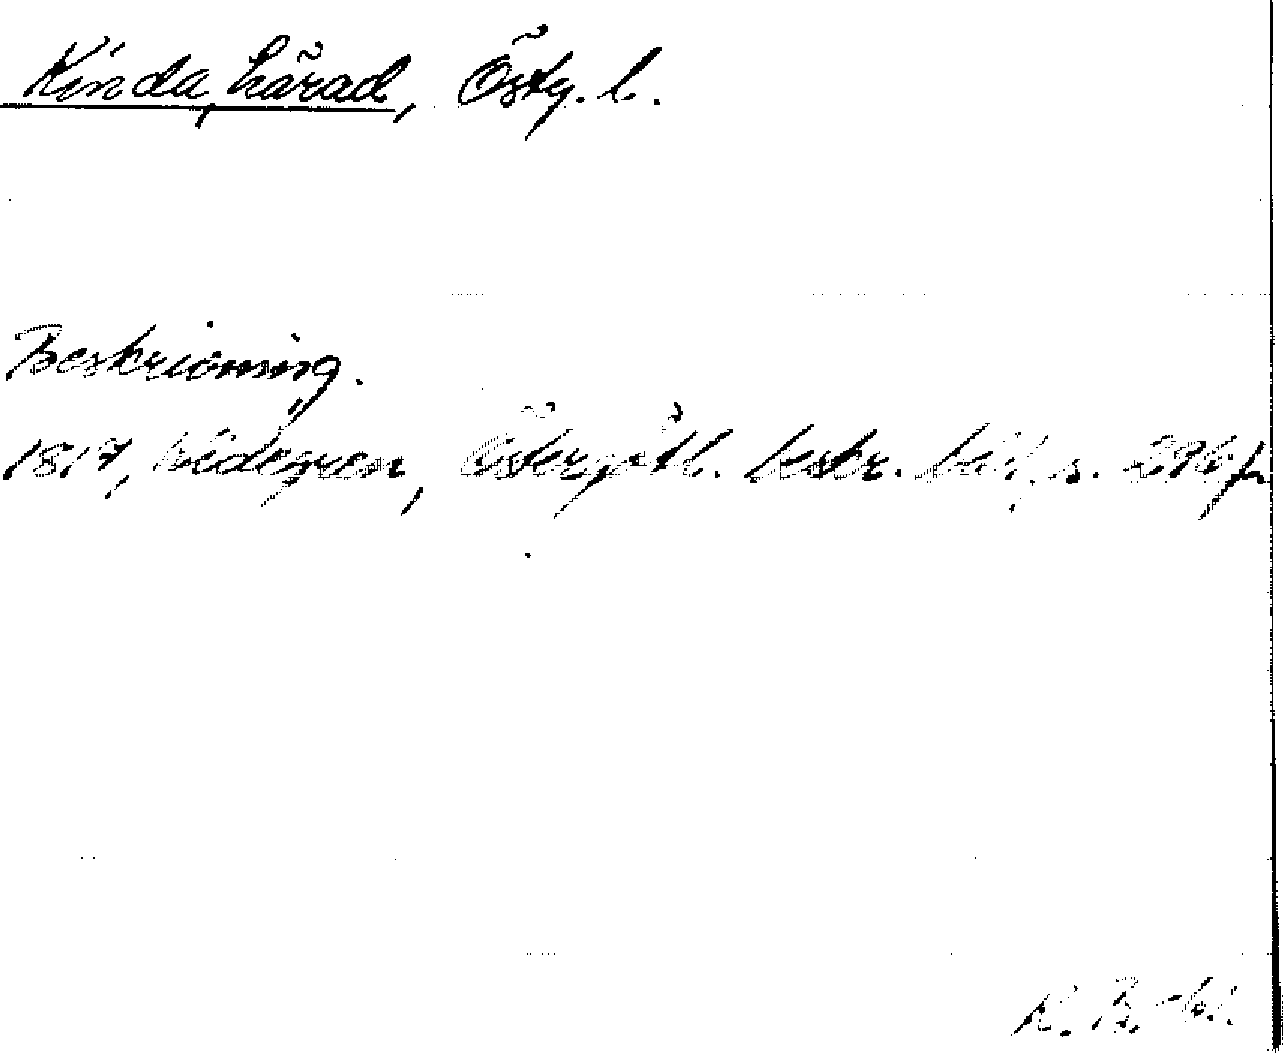 Kinda, härad, Östg. l.
Beskrivning.
1817, Widegren, Östergötl. beskr. II, s. 296 f
K. B.